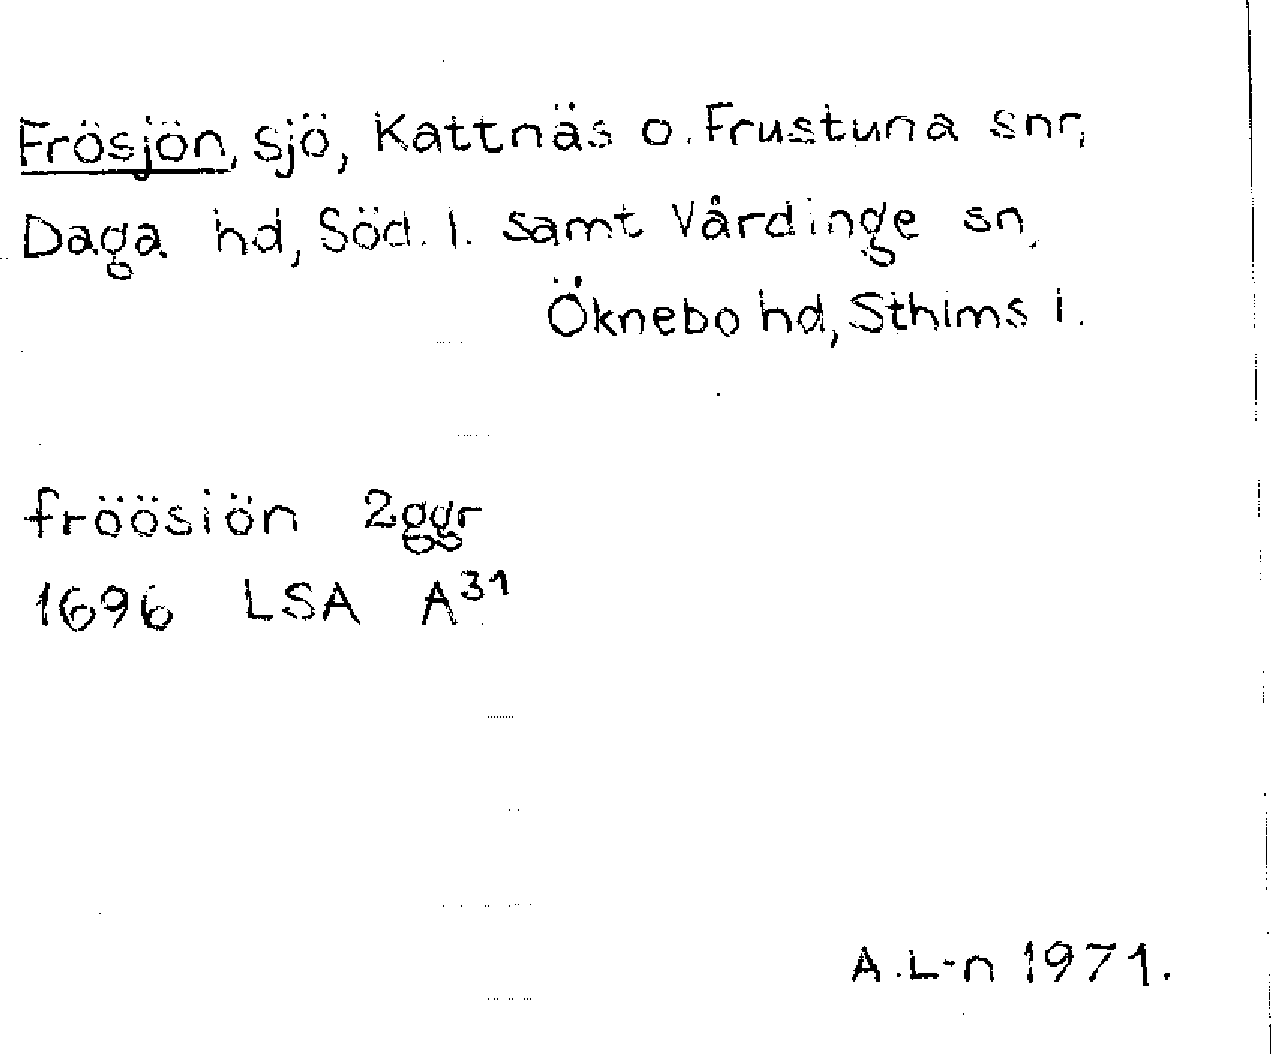 Frösjön, sjö, Kattnäs o. Frustuna snr,
Daga hd, Söd. l. samt Vårdinge sn,
Öknebo hd, Sthlms l.
fröösiön 2ggr
1696 LSA A³¹
A.L-n 1971.